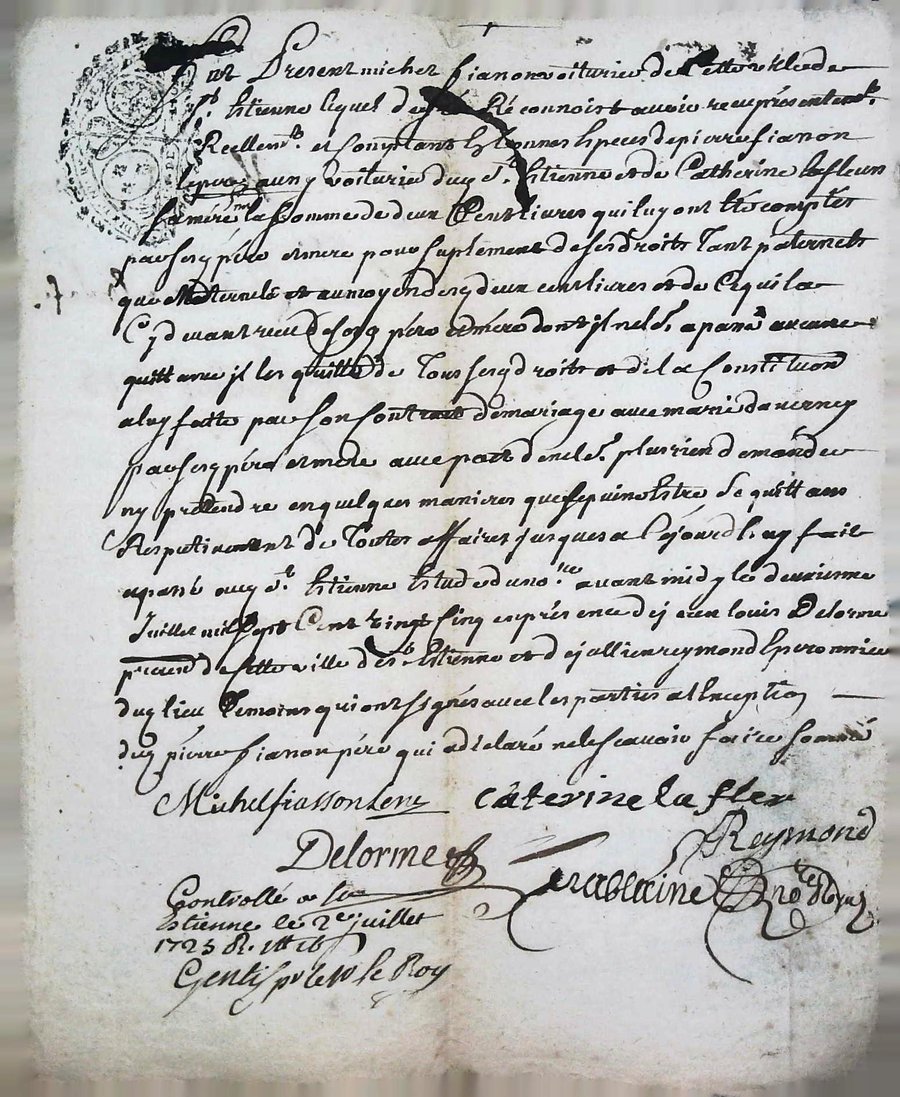 fut Present michel fianon voiturier de Cette ville de
St. Estienne lequel de gré Réconnoist avoir reçu présentemt.
Reellemt. et Comptant En bonnes Especes de pierre fianon
son pere auxy voiturier dud St. Estienne et de Catherine lafleur
sa mére la somme de deux Cent livres qui luy ont Eté comptés
par sesd père et mere pour suplement de ses droits Tant paternels
que Maternels et au moyen desd deux cent livres et de Ce qu'il a
Cy devant reçu de sesd père et mére dont il ne le. a passé aucune
quittance il les quitte de Tous sesd droits et de la Constitution
a luy faitte par son Contract de mariage avec marie duverney
par sesd pére et mere avec pact de ne les. plus rien demánder
ny prétendre en quelques manieres que se puisse Estre Se quittans
Respectivement de Toutes affaires jusques a Cejourdhuy fait
et passé aud St. Estienne Estude du nore. avant midy le deuxieme
Juillet mil sept Cent vingt Cinq en présence de jean louis Delorme
praticien de Cette ville de St. Estienne et de jullien reymond Eperonnier
dud lieu Témoins qui ont signés avec les parties a l'Exception
dud pierre fianon père qui a déclaré ne le scavoir faire sommé
Michel fiasson caterine la fler
Delorme Reymond
nore Royal
Controllé a St
Estienne le 2e juillet
1725 R.
le Roy